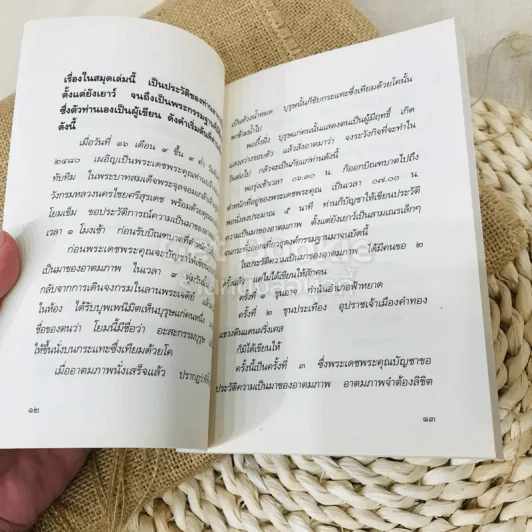 เรื่องในสมุดเล่มนี้ เป็นประวัติของท่าน
ตั้งแต่ยังเยาว์ จนถึงเป็นพระกรรมฐาน
ซึ่งตัวท่านเองเป็นผู้เขียน ดังคำเริ่มต้น
ดังนี้
เมื่อวันที่ ๑๖ เดือน ๙ ขึ้น ๙ ค่ำ
๒๔๘๐ เผอิญเป็นพระเดชพระคุณท่าน
ทับทิม ในพระบาทสมเด็จพระจุลจอม
วังกรมหลวงนครไชยศรีสุรเดช พร้อมด้วย
โยมเข็ม ขอประวัติการณ์ความเป็นมาของ
เวลา ๑ โมงเช้า ก่อนรับบิณฑบาต
ก่อนพระเดชพระคุณจะบัญชาให้เขียน
เป็นมาของอาตมภาพ ในเวลา ๙
กลับจากการเดินจงกรมในลานพระเจดีย์
ในห้อง ได้รับบุพเพนิมิตเห็นบุรุษแก่คนหนึ่ง
ชื่อของตนว่า โยมนี้มีชื่อว่า อะสะกรรมบุรุษ
ให้ขึ้นนั่งบนกระแทะซึ่งเทียมด้วยโค
เมื่ออาตมภาพนั่งเสร็จแล้ว ปรากฏว่า
๑๒
เป็นห้วงน้ำหมด บุรุษนั้นก็ขับกระแทะซึ่งเทียมด้วยโคนั้น
น้ำไป
พอถึงฝั่ง บุรุษแก่คนนั้นแสดงตนเป็นผู้มีฤทธิ์ เกิด
แสงสว่างรอบตัว แล้วสั่งอาตมาว่า จงระวังกิจที่จะทำใน
วันต่อไป กลัวจะเป็นภัยแก่ท่านดังนี้
พอรุ่งเช้าเวลา ๐๖.๓๐ น. ก็ออกบิณฑบาตไปถึง
ตำหนักที่อยู่ของพระเดชพระคุณ เป็นเวลา ๐๗.๐๐ น.
พอนั่งลงประมาณ ๕ นาที ท่านก็บัญชาให้เขียนประวัติ
ความเป็นมาของอาตมภาพ ตั้งแต่ยังเยาว์เป็นสามเณรเล็กๆ
จนกระทั่งออกเที่ยวรุดงค์กรรมฐานมาจนบัดนี้
ในประวัติความเป็นมาของอาตมภาพ ได้มีคนขอ ๒
ครั้งแล้ว แต่ไม่ได้เขียนให้สักคน
ครั้งที่ ๑ ขุนอาจ กำนันอำเภอฟ้าหยาด
ครั้งที่ ๒ ขุนประเทือง อุปราชเจ้าเมืองคำทอง
แขวงดินแดนฝรั่งเศส
ก็มิได้เขียนให้
ครั้งนี้เป็นครั้งที่ ๓ ซึ่งพระเดชพระคุณบัญชาขอ
ประวัติความเป็นมาของอาตมภาพ อาตมภาพจำต้องลิขิต
๑๓